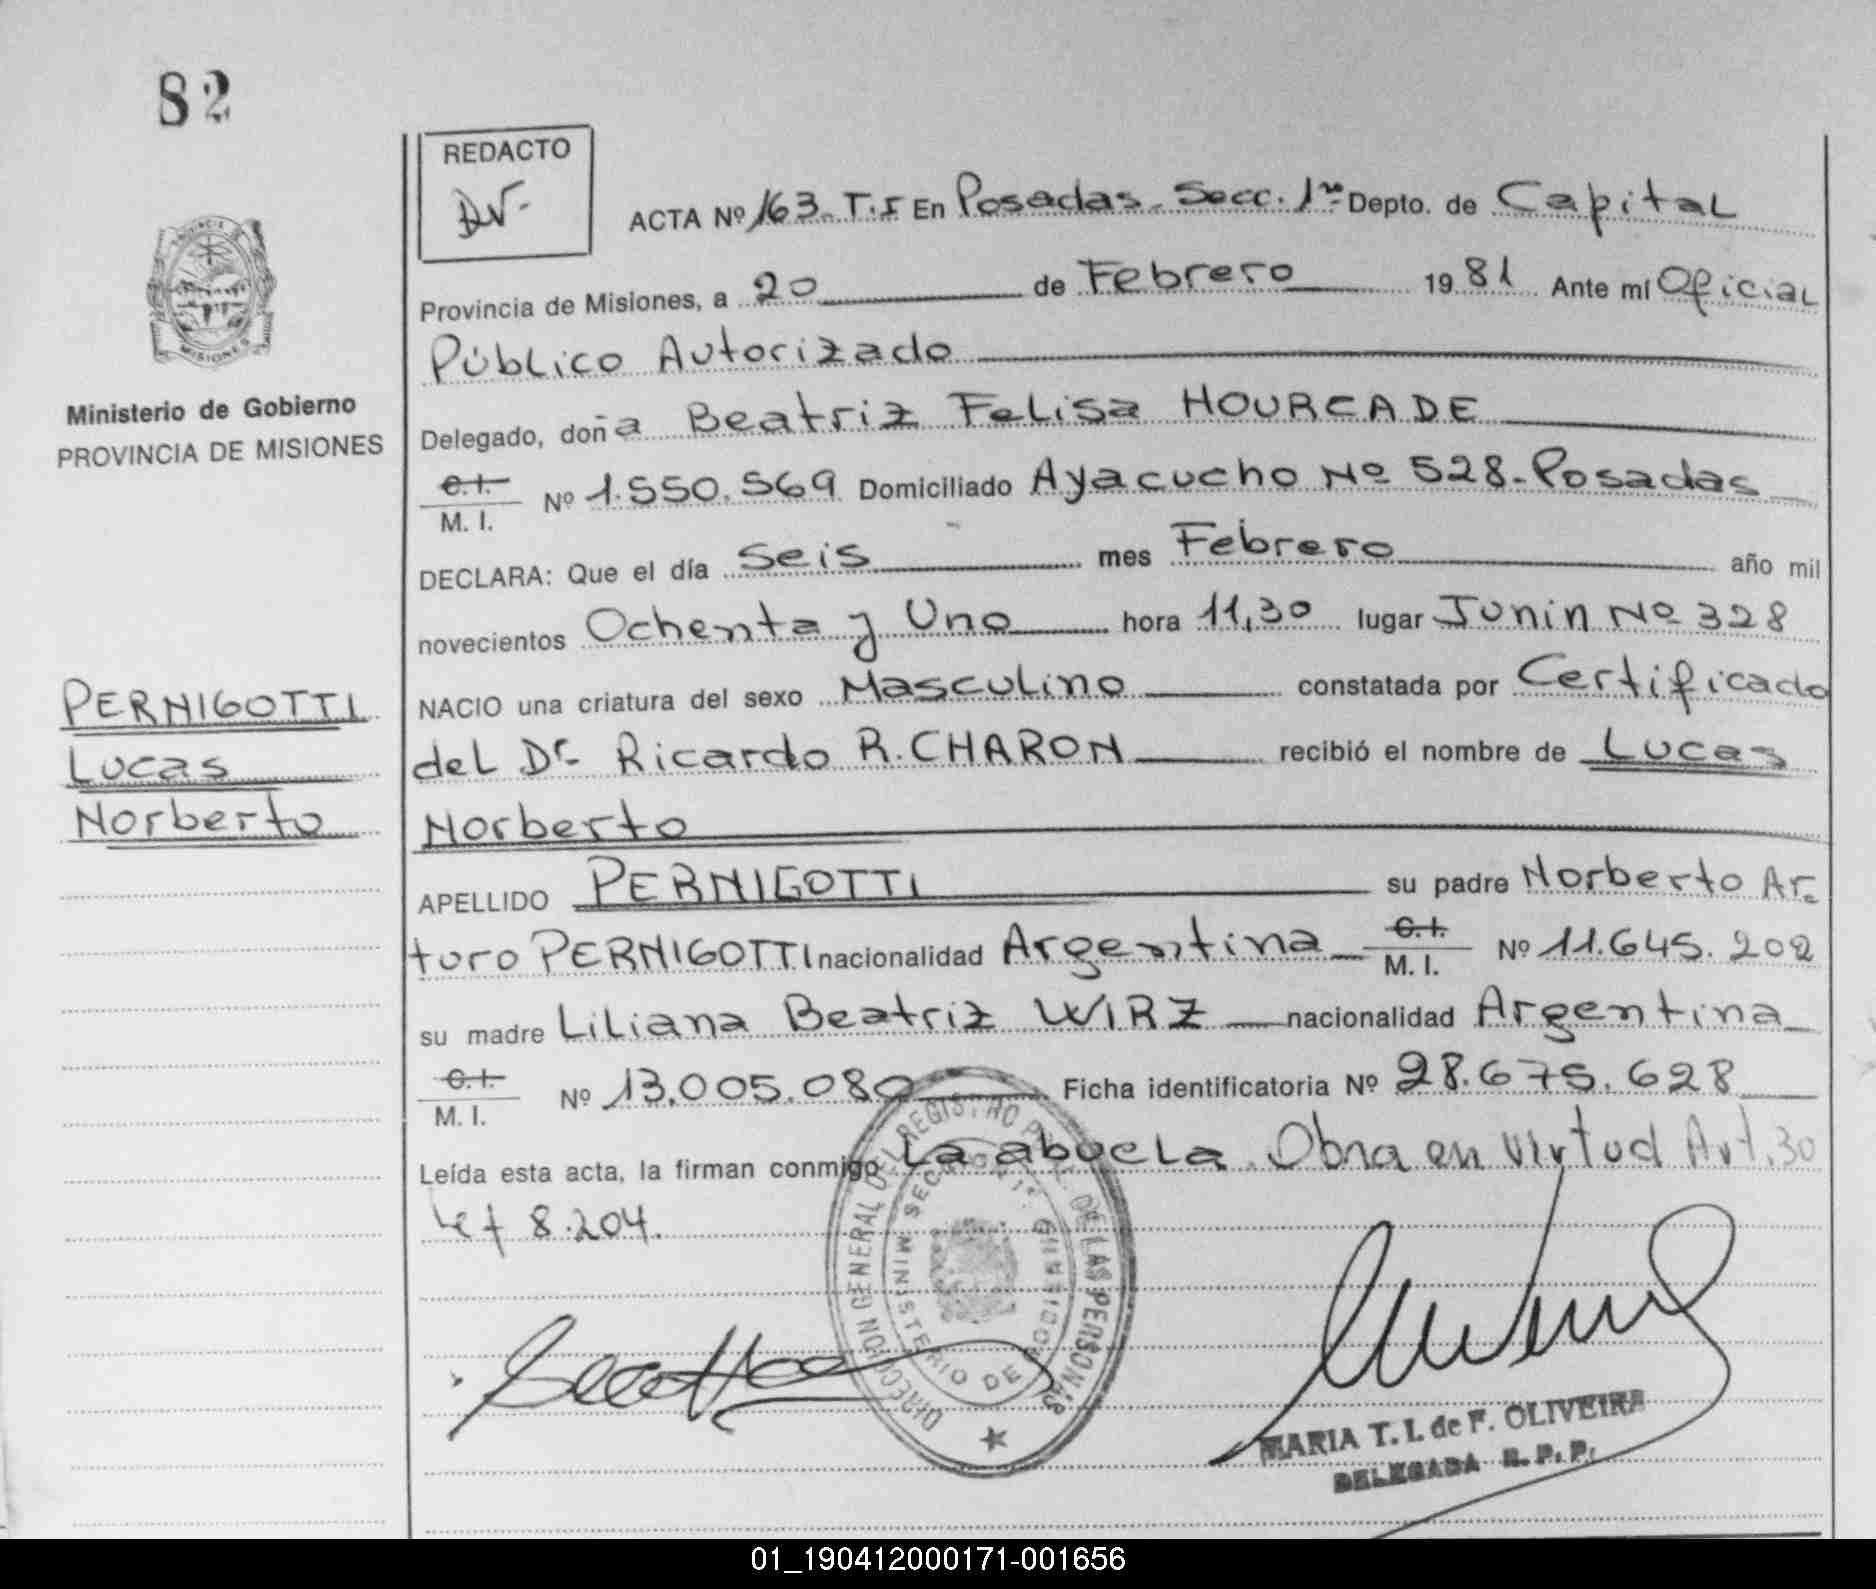 82
REDACTO
DV-
ACTA Nº 163. T.I En Posadas - Secc. 1ra Depto. de Capital
Provincia de Misiones, a 20 de Febrero 1981 Ante mí Oficial
Público Autorizado
Delegado, doña Beatriz Felisa HOURCADE
C.I.
M. I. Nº 1.550.569 Domiciliado Ayacucho Nº 528-Posadas
DECLARA: Que el día Seis mes Febrero año mil
novecientos Ochenta y Uno hora 11,30 lugar Junin Nº 328
NACIO una criatura del sexo Masculino constatada por Certificado
del Dr. Ricardo R. CHARON recibió el nombre de Lucas
Norberto
APELLIDO PERNIGOTTI su padre Norberto Ar-
turo PERNIGOTTI nacionalidad Argentina C.I.
M. I. Nº 11.645.202
su madre Liliana Beatriz WIRZ nacionalidad Argentina
C.I.
M. I. Nº 13.005.080 Ficha identificatoria Nº 28.675.628
Leída esta acta, la firman conmigo La abuela. Obra en virtud Art. 30
Ley 8.204.
MISIONES
Ministerio de Gobierno
PROVINCIA DE MISIONES
PERNIGOTTI
Lucas
Norberto
DIRECCION GENERAL DEL REGISTRO P. DE LAS PERSONAS
MINISTERIO DE GOBIERNO
SECCION 1ª
MARIA T. I. de F. OLIVEIRA
DELEGADA R. P. P.
01_190412000171-001656